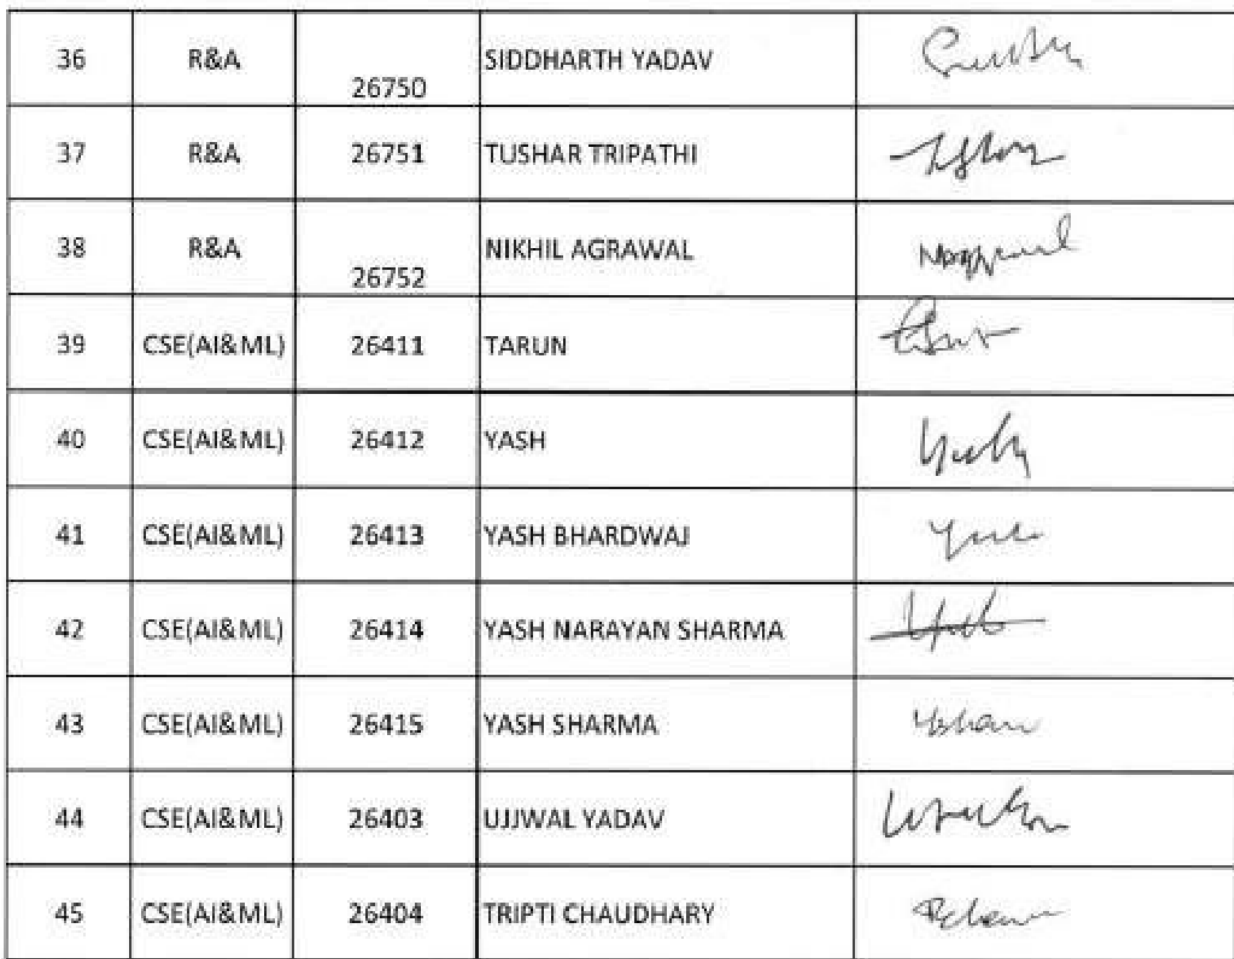 36 R&A 26750 SIDDHARTH YADAV
37 R&A 26751 TUSHAR TRIPATHI
38 R&A 26752 NIKHIL AGRAWAL
39 CSE(AI&ML) 26411 TARUN
40 CSE(AI&ML) 26412 YASH
41 CSE(AI&ML) 26413 YASH BHARDWAJ
42 CSE(AI&ML) 26414 YASH NARAYAN SHARMA
43 CSE(AI&ML) 26415 YASH SHARMA
44 CSE(AI&ML) 26403 UJJWAL YADAV
45 CSE(AI&ML) 26404 TRIPTI CHAUDHARY